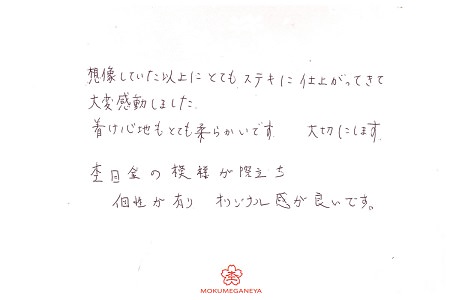 想像していた以上に とても ステキに 仕上がってきて
大変感動しました.
着け心地もとても柔らかいです. 大切にします.
杢目金の 模様が 際立ち
個性が有り オリジナル感が良いです。
MOKUMEGANEYA